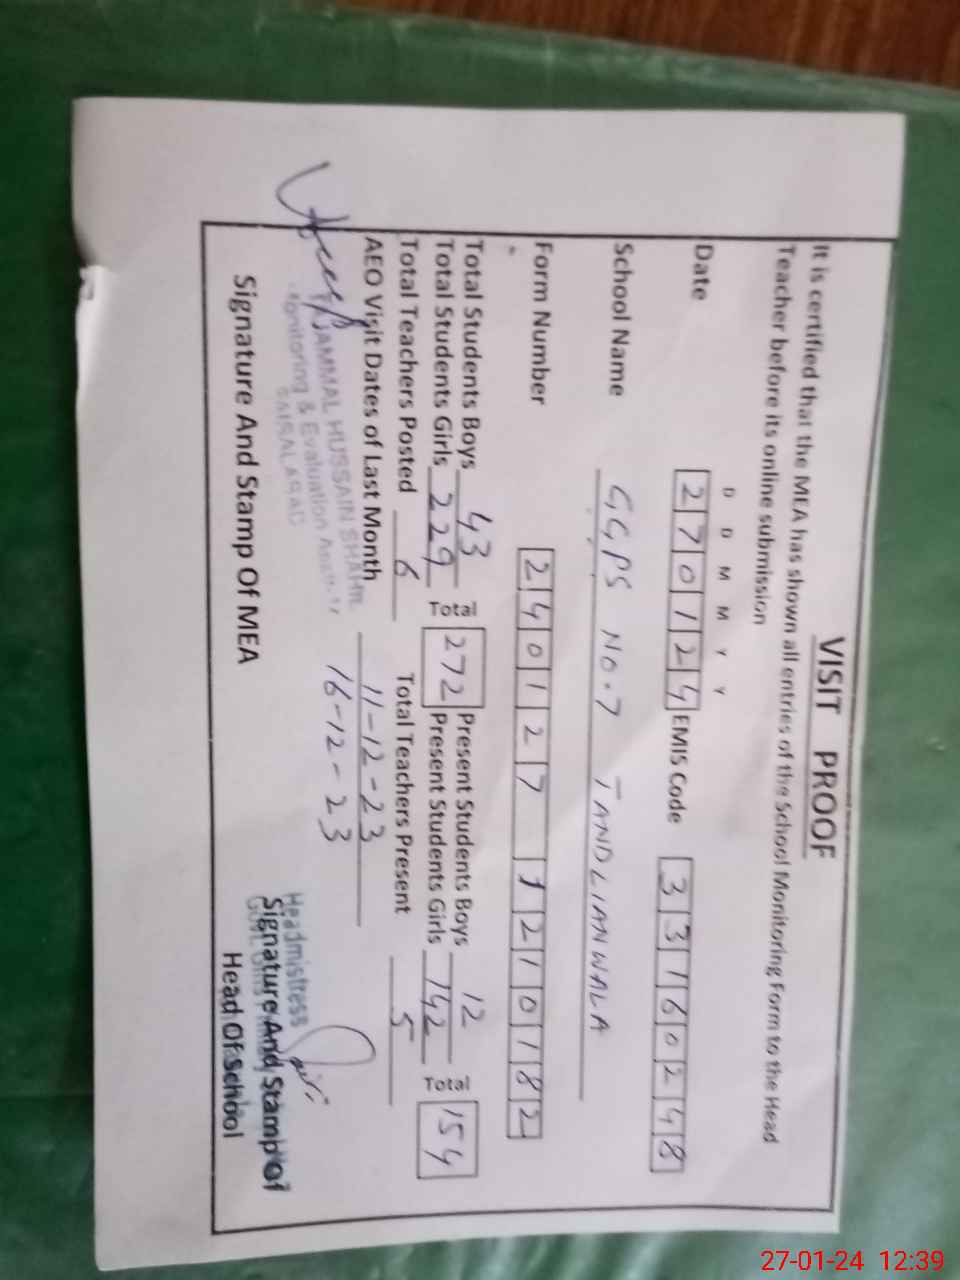 VISIT PROOF
It is certified that the MEA has shown all entries of the School Monitoring Form to the Head
Teacher before its online submission
D D M M Y Y
Date 270124 EMIS Code 33160248
School Name GGPS NO.7 TANDLIANWALA
Form Number 240127 1210182
Total Students Boys 43 Present Students Boys 12
Total Students Girls 229 Total 272 Present Students Girls 142 Total 154
Total Teachers Posted 6 Total Teachers Present 5
AEO Visit Dates of Last Month 11-12-23
16-12-23
JAMMAL HUSSAIN SHAHI
Monitoring & Evaluation
FAISALABAD
Headmistress
Signature And Stamp Of MEA
Signature And Stamp Of
Head Of School
27-01-24 12:39